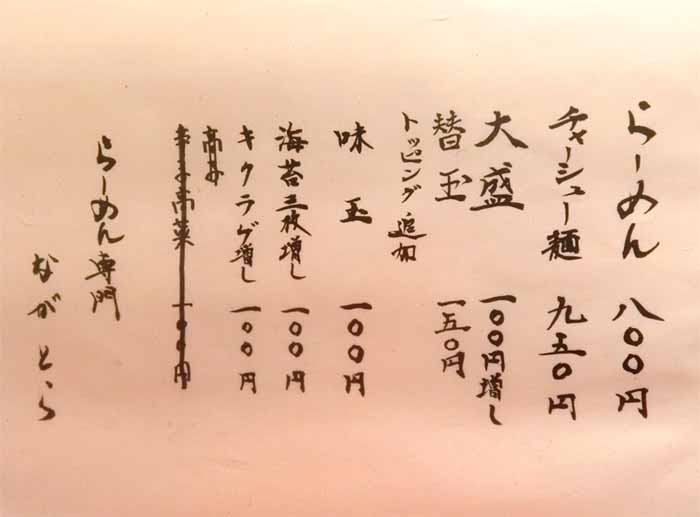 らーめん 八〇〇円
チャーシュー麺 九五〇円
大盛 一〇〇円増し
替玉 一五〇円
トッピング追加
味玉 一〇〇円
海苔三枚増し 一〇〇円
キクラゲ増し 一〇〇円
高菜 一〇〇円
らーめん専門
ながとら